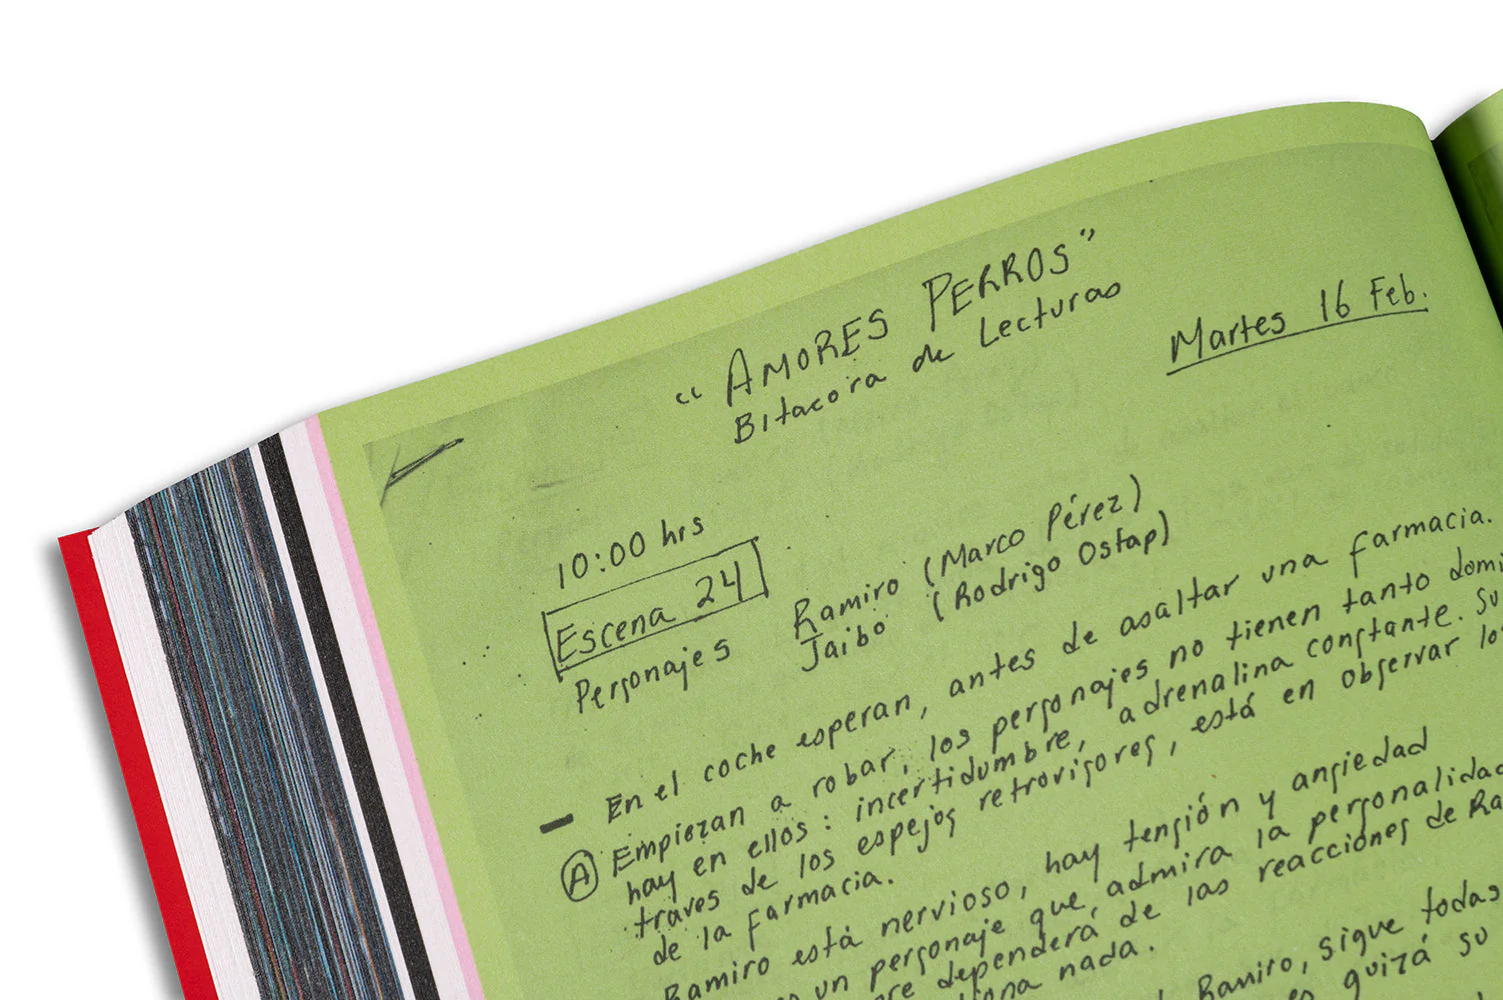 "AMORES PERROS"
Bitacora de Lecturas
Martes 16 Feb.
10:00 hrs
Escena 24
Personajes
Ramiro (Marco Pérez)
Jaibo (Rodrigo Ostap)
— En el coche esperan, antes de asaltar una farmacia.
(A) Empiezan a robar, los personajes no tienen tanto domi
hay en ellos: incertidumbre, adrenalina constante. Su
través de los espejos retrovisores, está en observar lo
de la farmacia.
Ramiro está nervioso, hay tensión y ansiedad
un personaje que, admira la personalidad
dependerá de las reacciones de Ra
nada.
Ramiro, sigue todas
quizá su